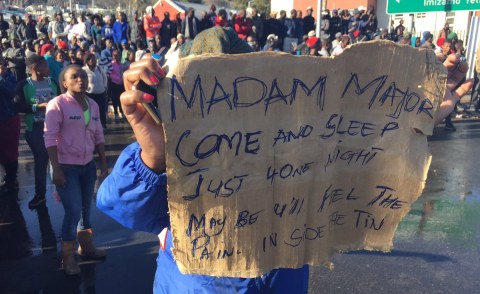 Imizamo Ye
MADAM MAJOR
COME AND SLEEP
JUST 4ONE NIGHT
MAY BE y'll FEL THE
PAIN. IN SIDE THE TIN